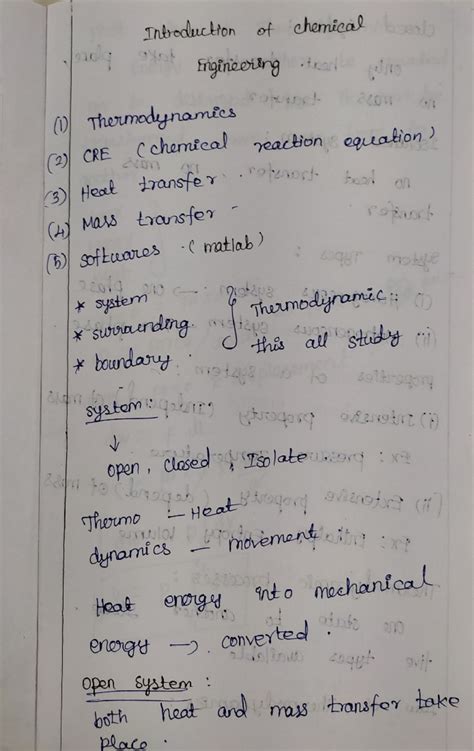 Introduction of chemical
Engineering.
(1) Thermodynamics
(2) CRE (chemical reaction equation)
(3) Heat transfer.
(4) Mass transfer
(5) softwares (matlab)
* system
* surrounding
* boundary.
} Thermodynamic
this all study
system:
↓
open, closed, Isolate
Thermo - Heat
dynamics - movement.
Heat energy into mechanical
energy → converted.
open system:
both heat and mass transfer take
place.